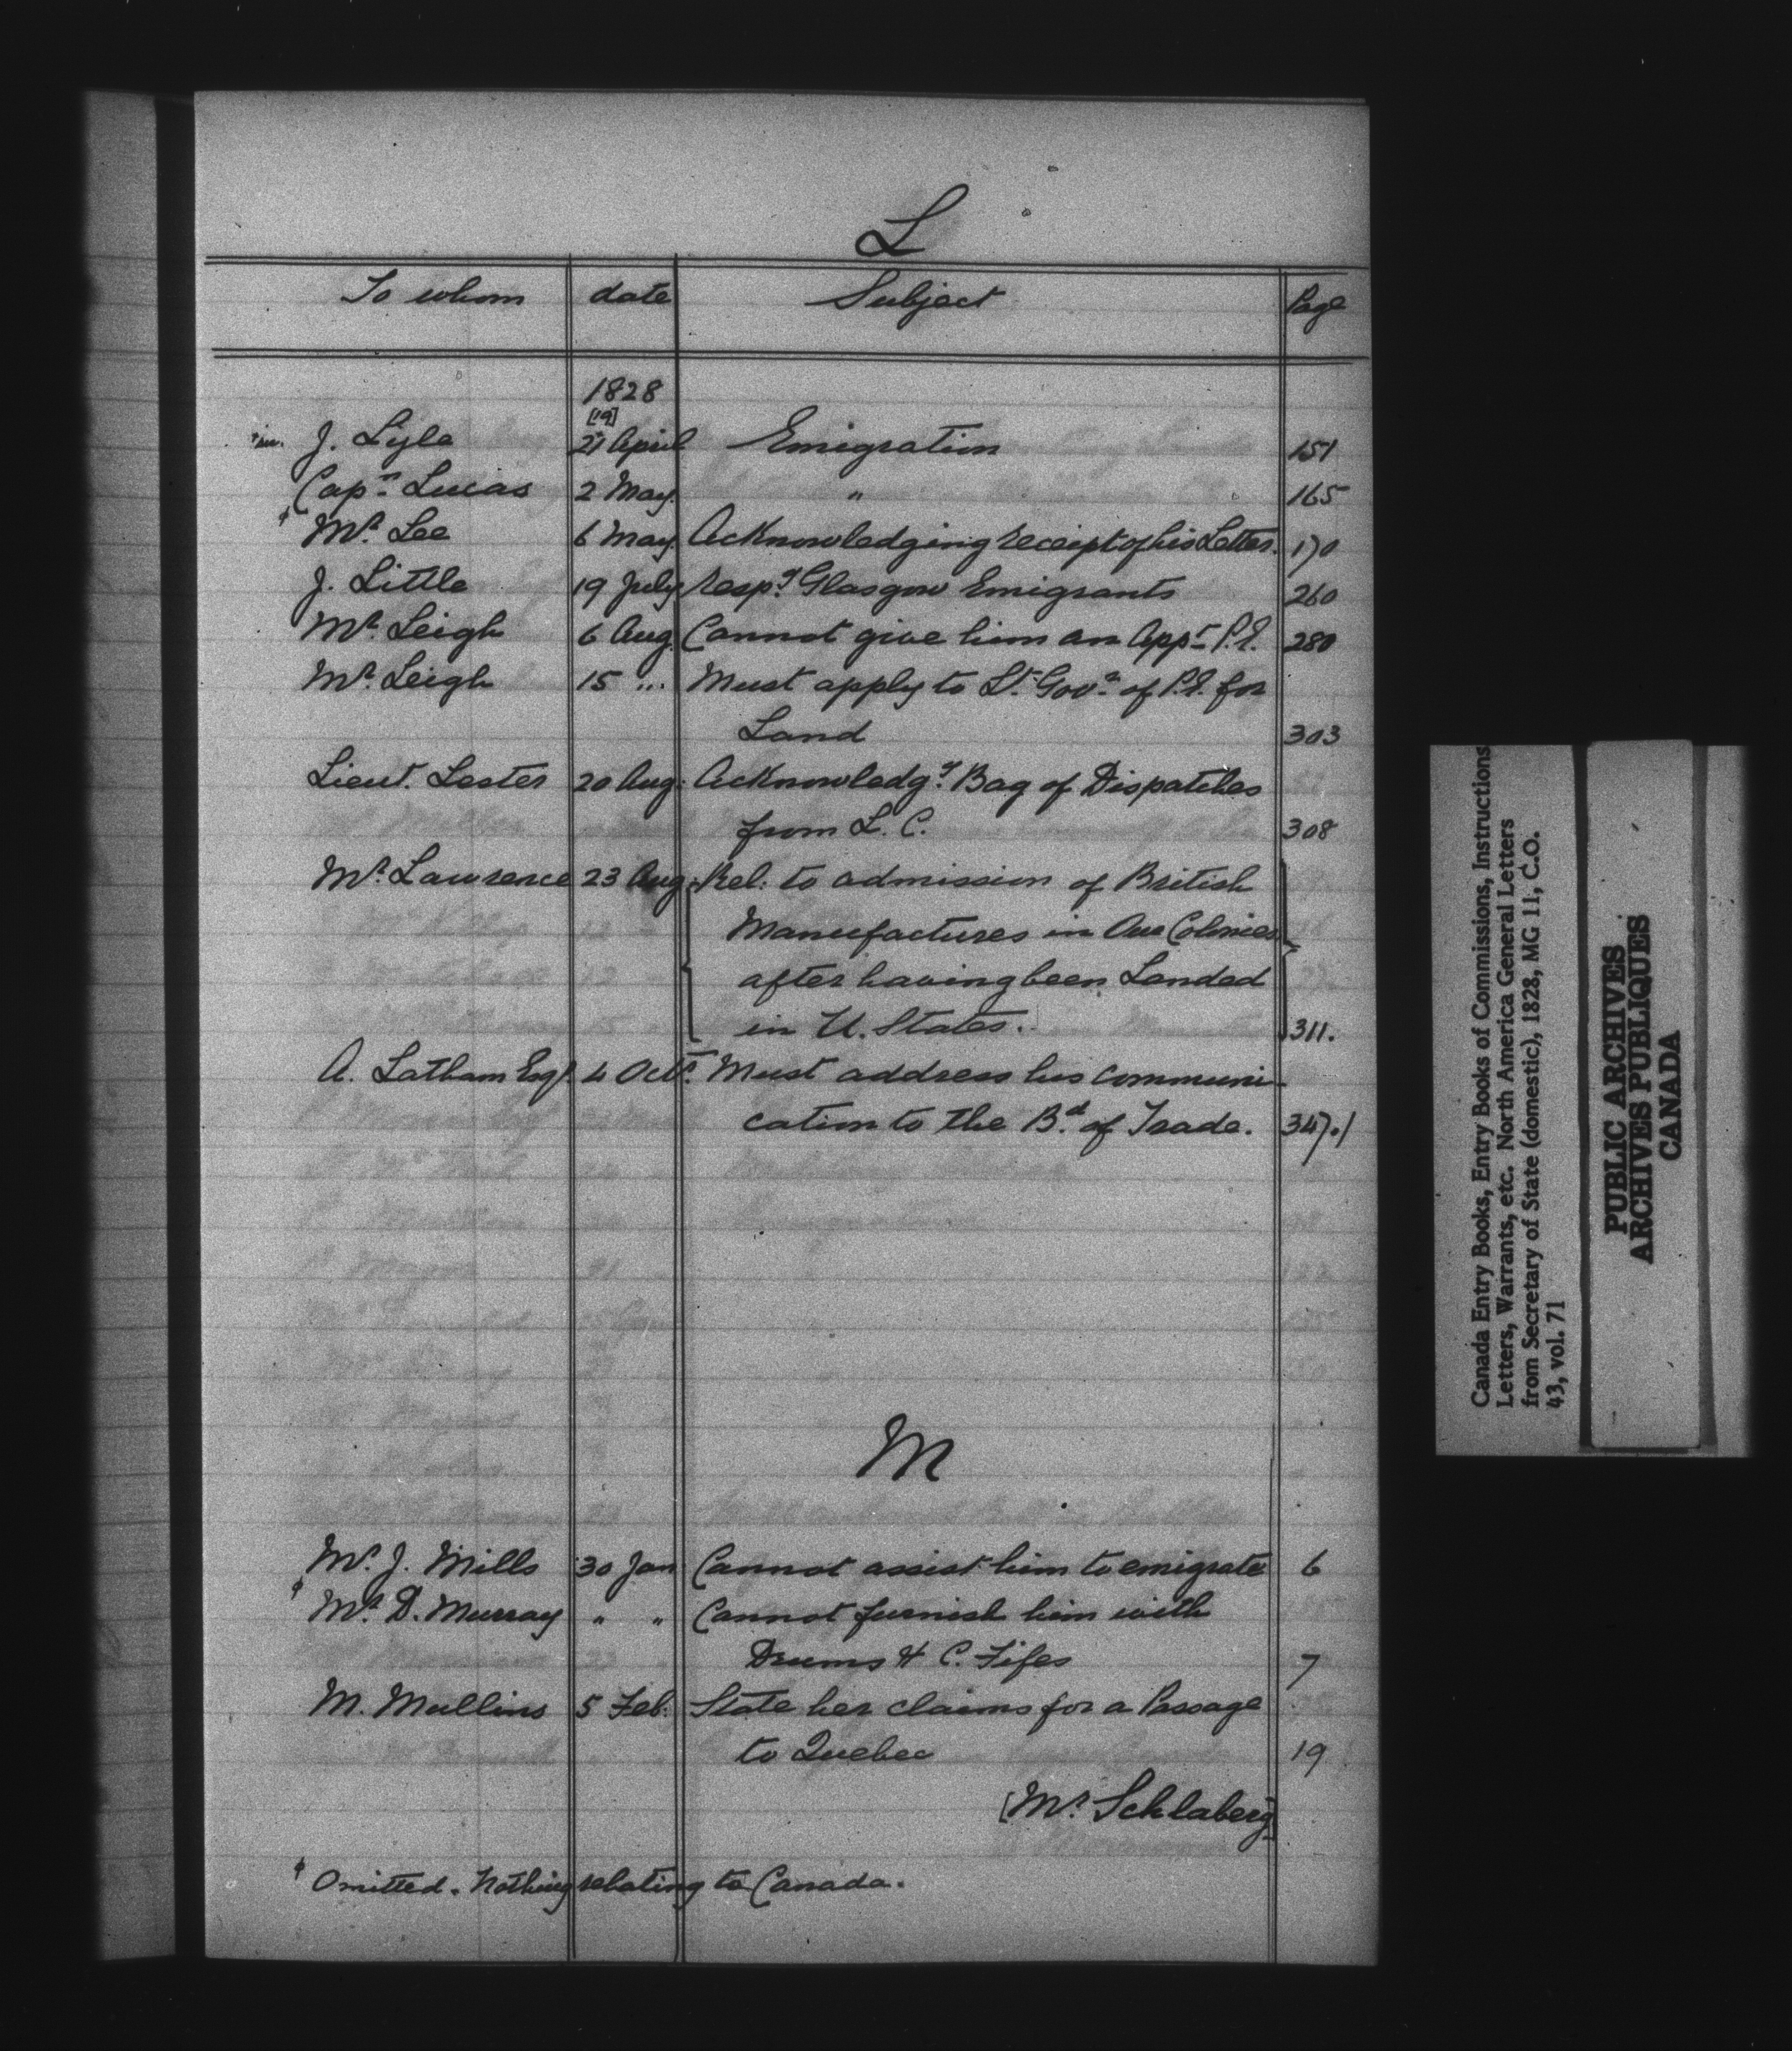 L
To whom date Subject Page
1828
[19]
J. Lyle 21 April Emigration 151
Capn Lucas 2 May. " 165
ϕ Mr. Lee 6 May. Acknowledging receipt of his Letter. 170
J. Little 19 July Respg Glasgow Emigrants 260
Mr. Leigh 6 Aug. Cannot give him an Appt P.E. 280
Mr. Leigh 15 " Must apply to Lt. Govr. of P.E. for
Land 303
Lieut. Lester 20 Aug: Acknowledgg Bag of Dispatches
from L. C. 308
Mr. Lawrence 23 Aug: Rel: to admission of British
Manufactures in Our Colonies
after having been Landed
in U. States. 311.
A. Latham Esqr. 4 Octr. Must address his communi-
cation to the Bd. of Trade. 347./
M
Mr. J. Mills 30 Jan Cannot assist him to emigrate 6
ϕ Mr. D. Murray " " Cannot furnish him with
Drums & C. Fifes 7
M. Mullins 5 Feb: State her claims for a Passage
to Quebec 19
[Mr. Schlaberg]
ϕ Omitted. Nothing relating to Canada.
Canada Entry Books, Entry Books of Commissions, Instructions
Letters, Warrants, etc. North America General Letters
from Secretary of State (domestic), 1828, MG 11, C.O.
43, vol. 71
PUBLIC ARCHIVES
ARCHIVES PUBLIQUES
CANADA